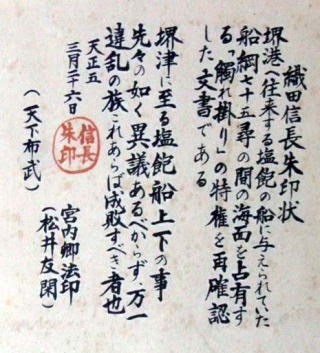 織田信長朱印状
堺港へ往来する塩飽の船に与えられていた
船綱七十五尋の間の海面を占有す
る「觸れ掛り」の特権を再確認
した文書である
堺津に至る塩飽船上下の事
先々の如く異議あるべからず万一
違乱の族これあらば成敗すべき者也
天正五
三月二十六日
信長
朱印
(天下布武)
宮内卿法印
(松井友閑)